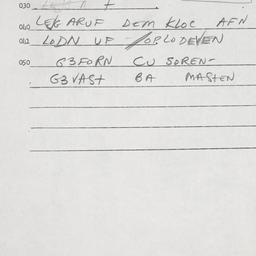 030
040 LEK ARUF DEM KLOC AFN
042 LODN UF OPLODEVEN
050 G3FORN CU SOREN-
G3VAST BA MASTEN